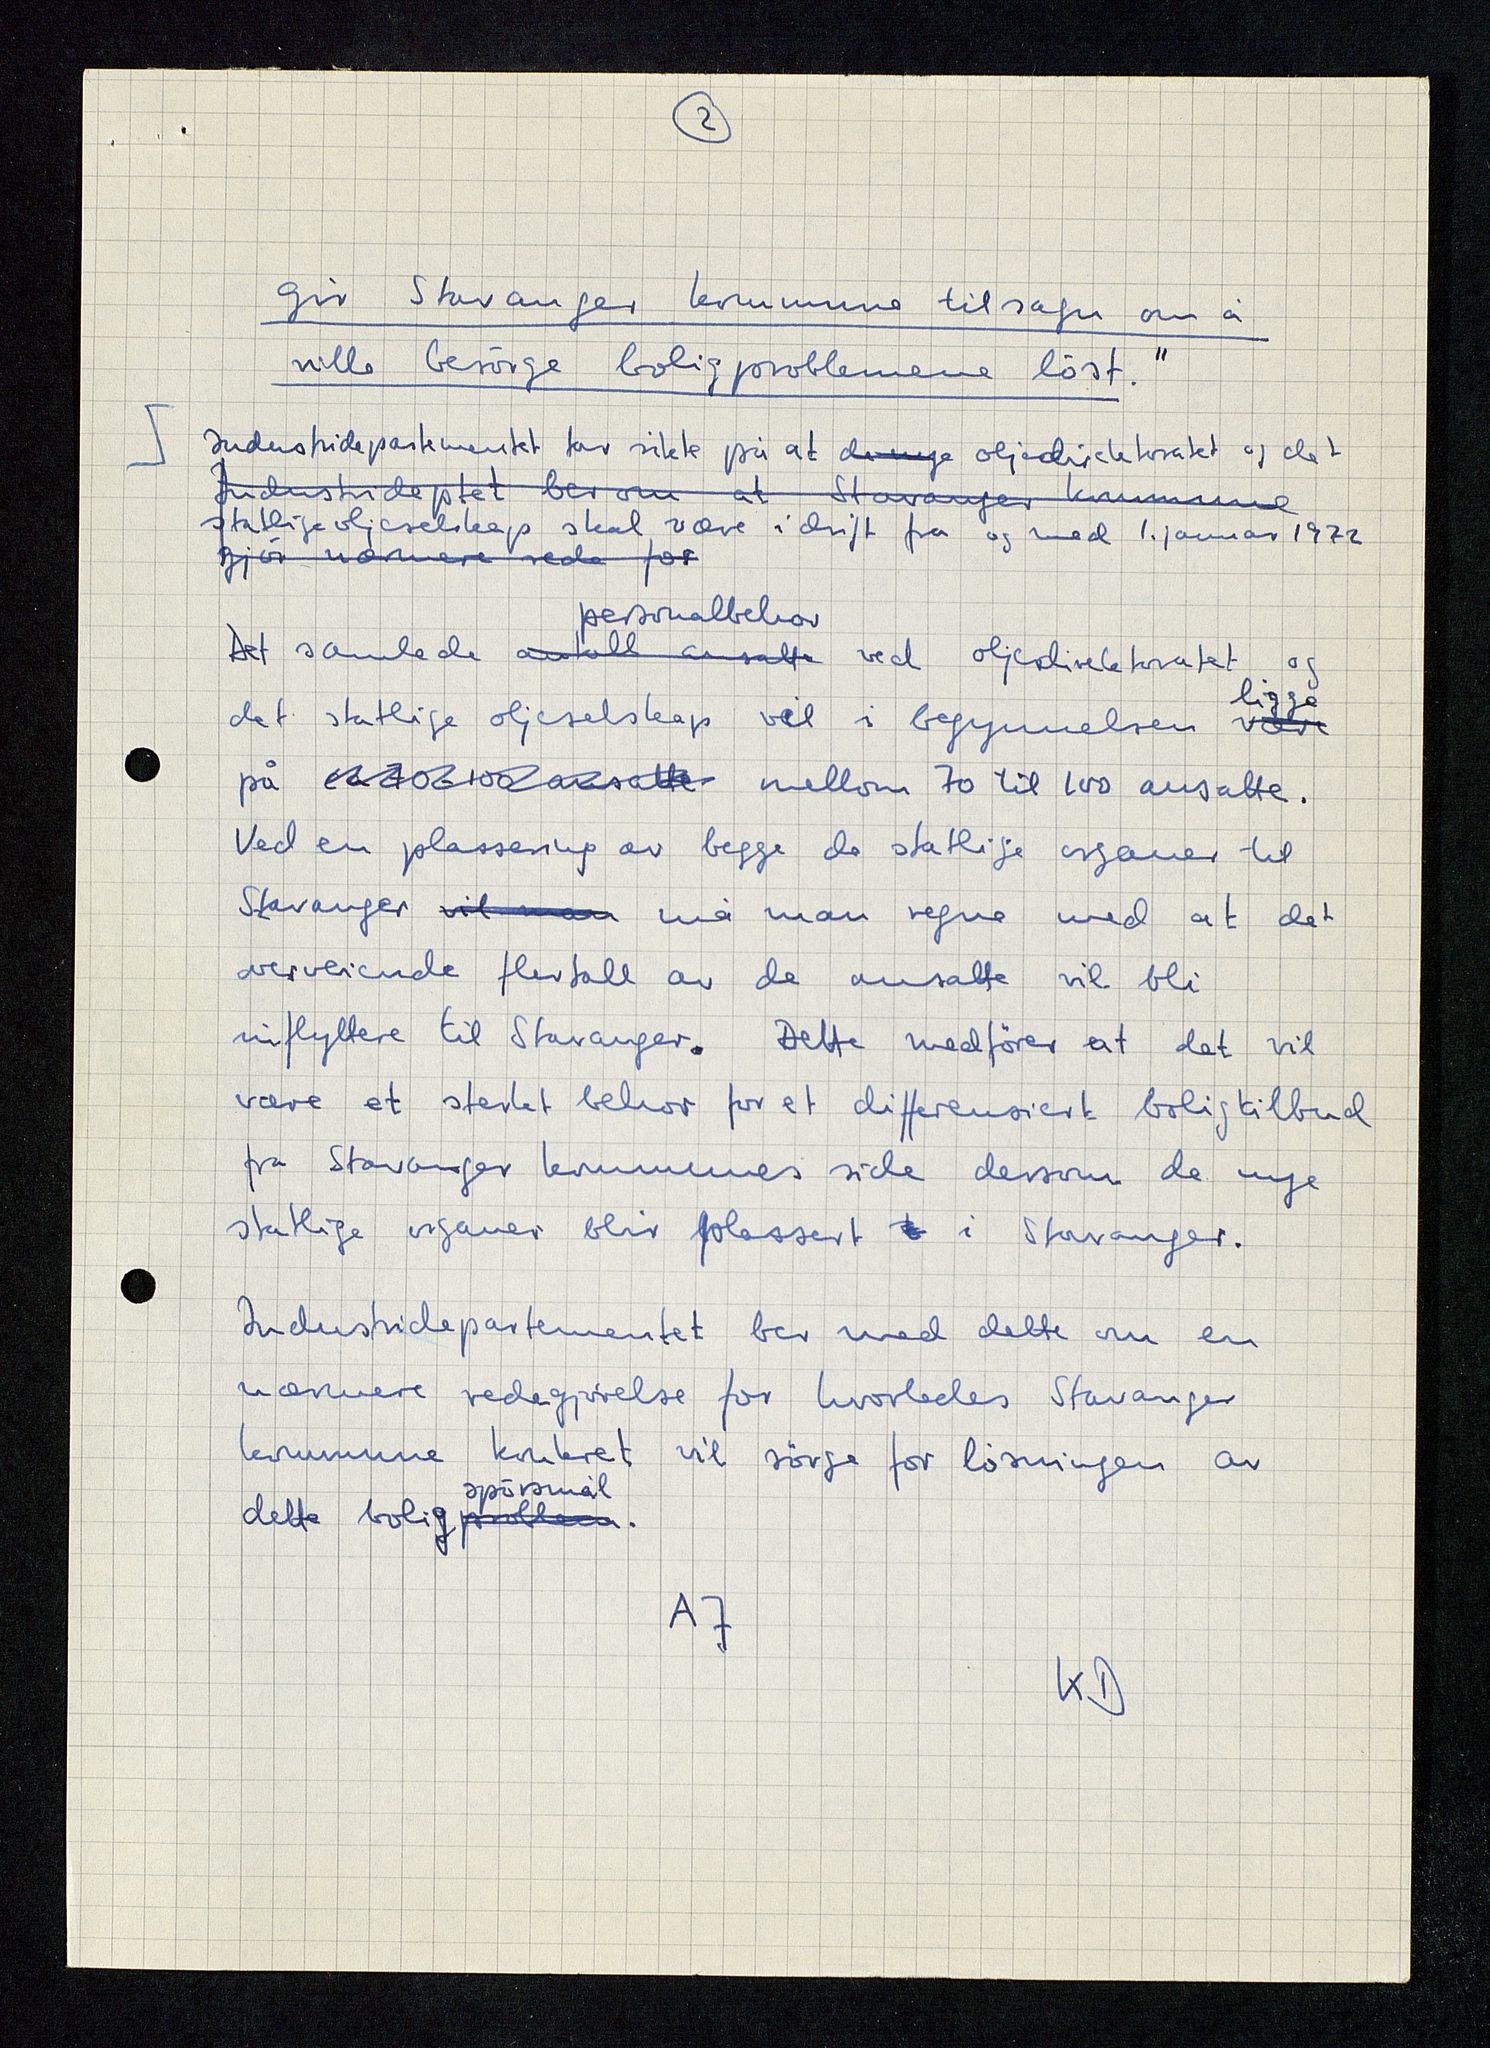 2
gir Stavanger kommune tilsagn om å
ville besörge boligproblemene löst."
Industridepartementet tar sikte på at de nye oljedirektoratet og det
Industrideptet ber om at Stavanger kommune
statlige oljeselskap skal være i drift fra og med 1. januar 1972
gjör nærmere rede for
personalbehov
Det samlede antall ansatte ved oljedirektoratet og
ligge
det statlige oljeselskap vil i begynnelsen være
på ca 70-100 ansatte mellom 70 til 100 ansatte.
Ved en plassering av begge de statlige organer til
Stavanger vil man må man regne med at det
overveiende flertall av de ansatte vil bli
innflyttere til Stavanger. Dette medförer at det vil
være et sterkt behov for et differensiert boligtilbud
fra Stavanger kommunes side dersom de nye
statlige organer blir plassert t i Stavanger.
Industridepartementet ber med dette om en
nærmere redegjörelse for hvorledes Stavanger
kommune konkret vil sörge for lösningen av
spörsmål
dette boligproblem.
AJ
KD